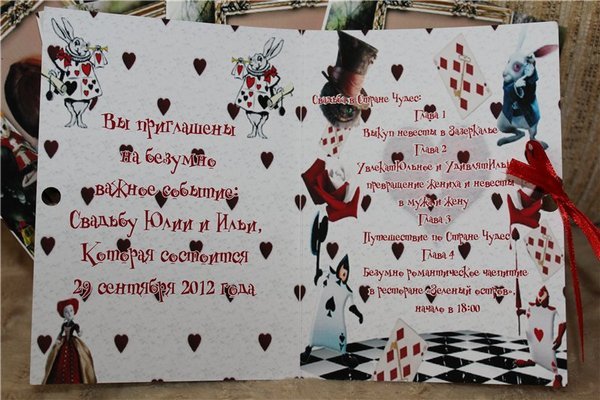 Вы приглашены
на безумно
важное событие:
Свадьбу Юлии и Ильи,
Которая состоится
29 сентября 2012 года
Свадьба в Стране Чудес:
Глава 1
Выкуп невесты в Зазеркалье
Глава 2
УвлекатЮльное и УдивлятИльное
превращение жениха и невесты
в мужа и жену
Глава 3
Путешествие по Стране Чудес
Глава 4
Безумно романтическое чаепитие
в ресторане «Зеленый остров»,
начало в 18:00